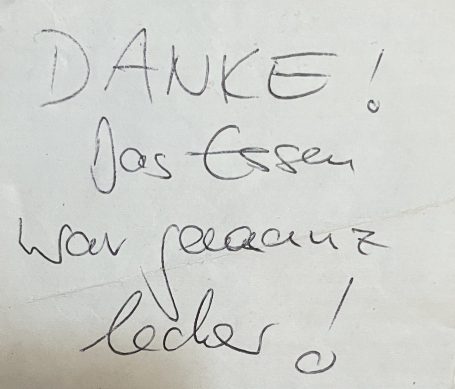 DANKE!
Das Essen
war gaaaanz
lecker!